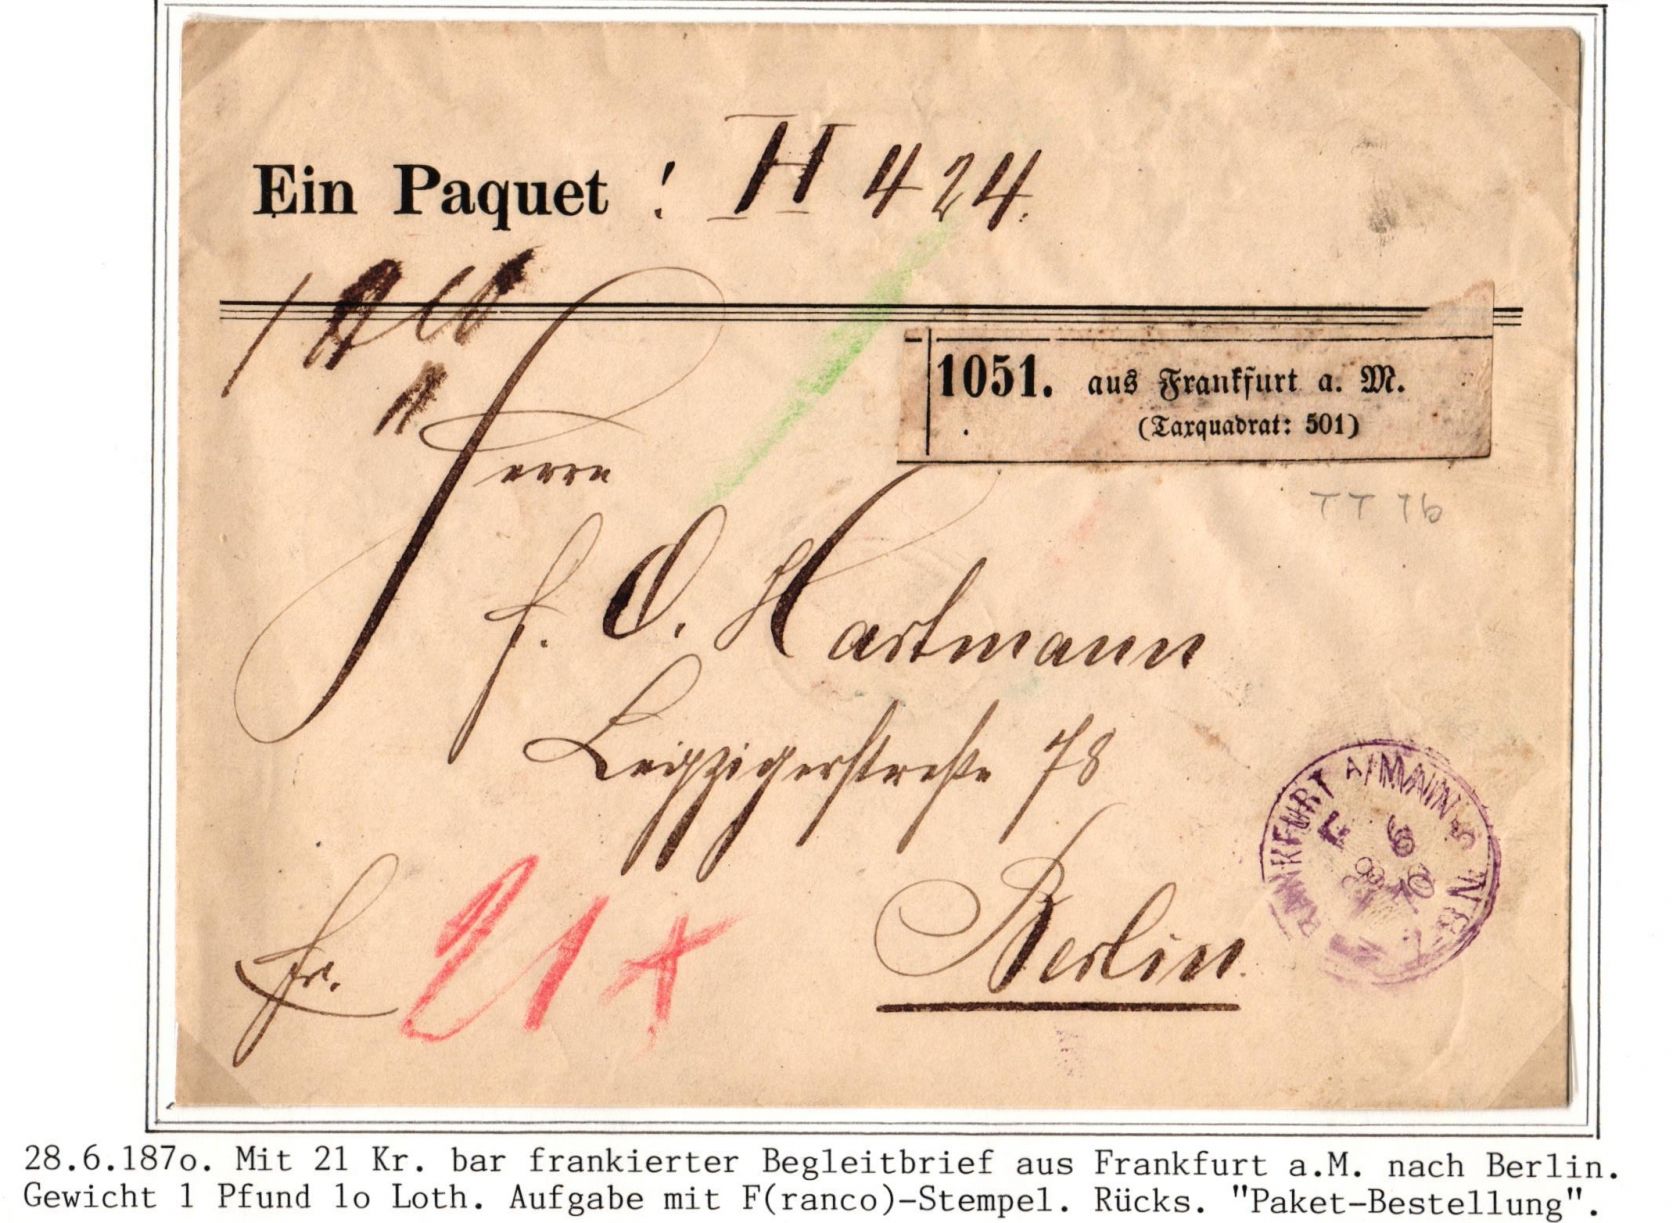 Ein Paquet ! H 424.
1051. aus Frankfurt a. M.
(Taxquadrat: 501)
TT 7b
Herrn
F. O. Hartmann
Leipzigerstraße 78
Berlin.
fr. 21 x
FRANKFURT A/MAIN 5
28.6.187o. Mit 21 Kr. bar frankierter Begleitbrief aus Frankfurt a.M. nach Berlin.
Gewicht 1 Pfund 1o Loth. Aufgabe mit F(ranco)-Stempel. Rücks. "Paket-Bestellung".